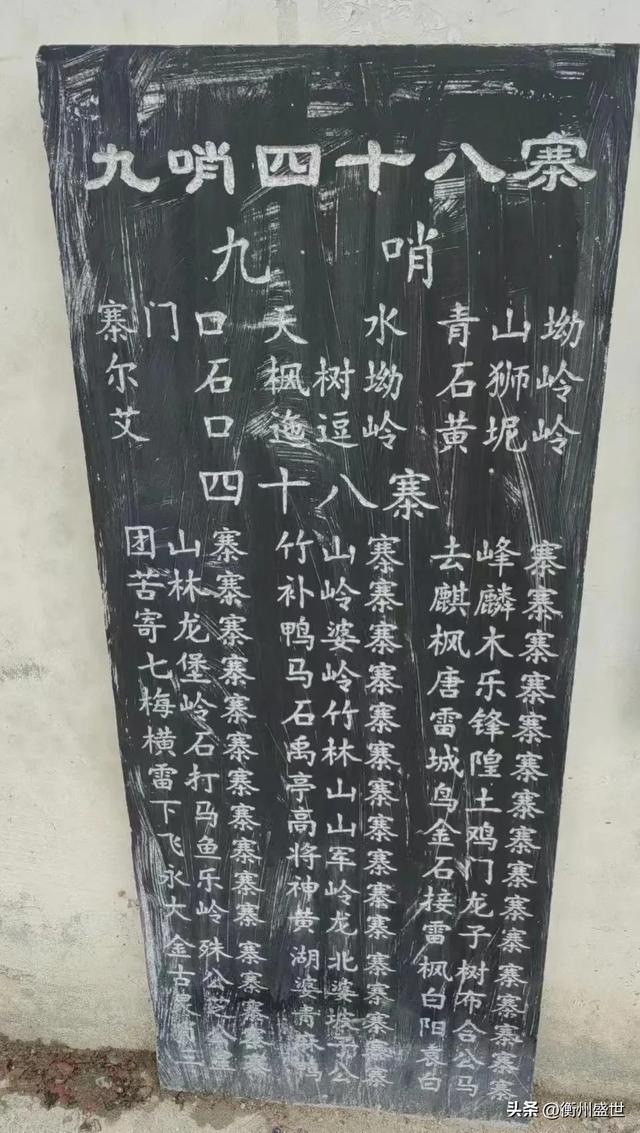 九哨四十八寨
九 哨
寨门口 天水 青山坳
尔石 枫树坳 石狮岭
艾口 迤逗岭 黄坭岭
四十八寨
团山寨 竹山寨 去峰寨
苦林寨 补岭寨 麒麟寨
寄龙寨 鸭婆寨 枫木寨
七堡寨 马岭寨 唐乐寨
梅岭寨 石竹寨 雷锋寨
横石寨 禹林寨 城隍寨
雷打寨 亭山寨 鸟土寨
下马寨 高山寨 金鸡寨
飞鱼寨 将军寨 石门寨
永乐寨 神岭寨 接龙寨
大岭寨 黄龙寨 雷子寨
金殊寨 湖北寨 枫树寨
古公寨 婆婆寨 白布寨
寨 青寨 阳合寨
寨 寨 袁公寨
寨 鸭公寨 白马寨
头条 @衡州盛世